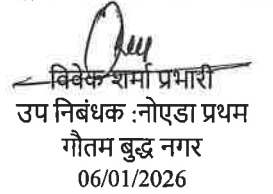 विवेक शर्मा प्रभारी
उप निबंधक :नोएडा प्रथम
गौतम बुद्ध नगर
06/01/2026